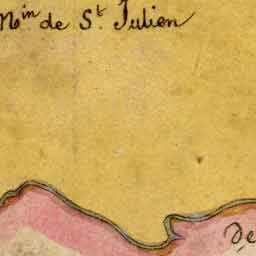 Min de St Julien
De